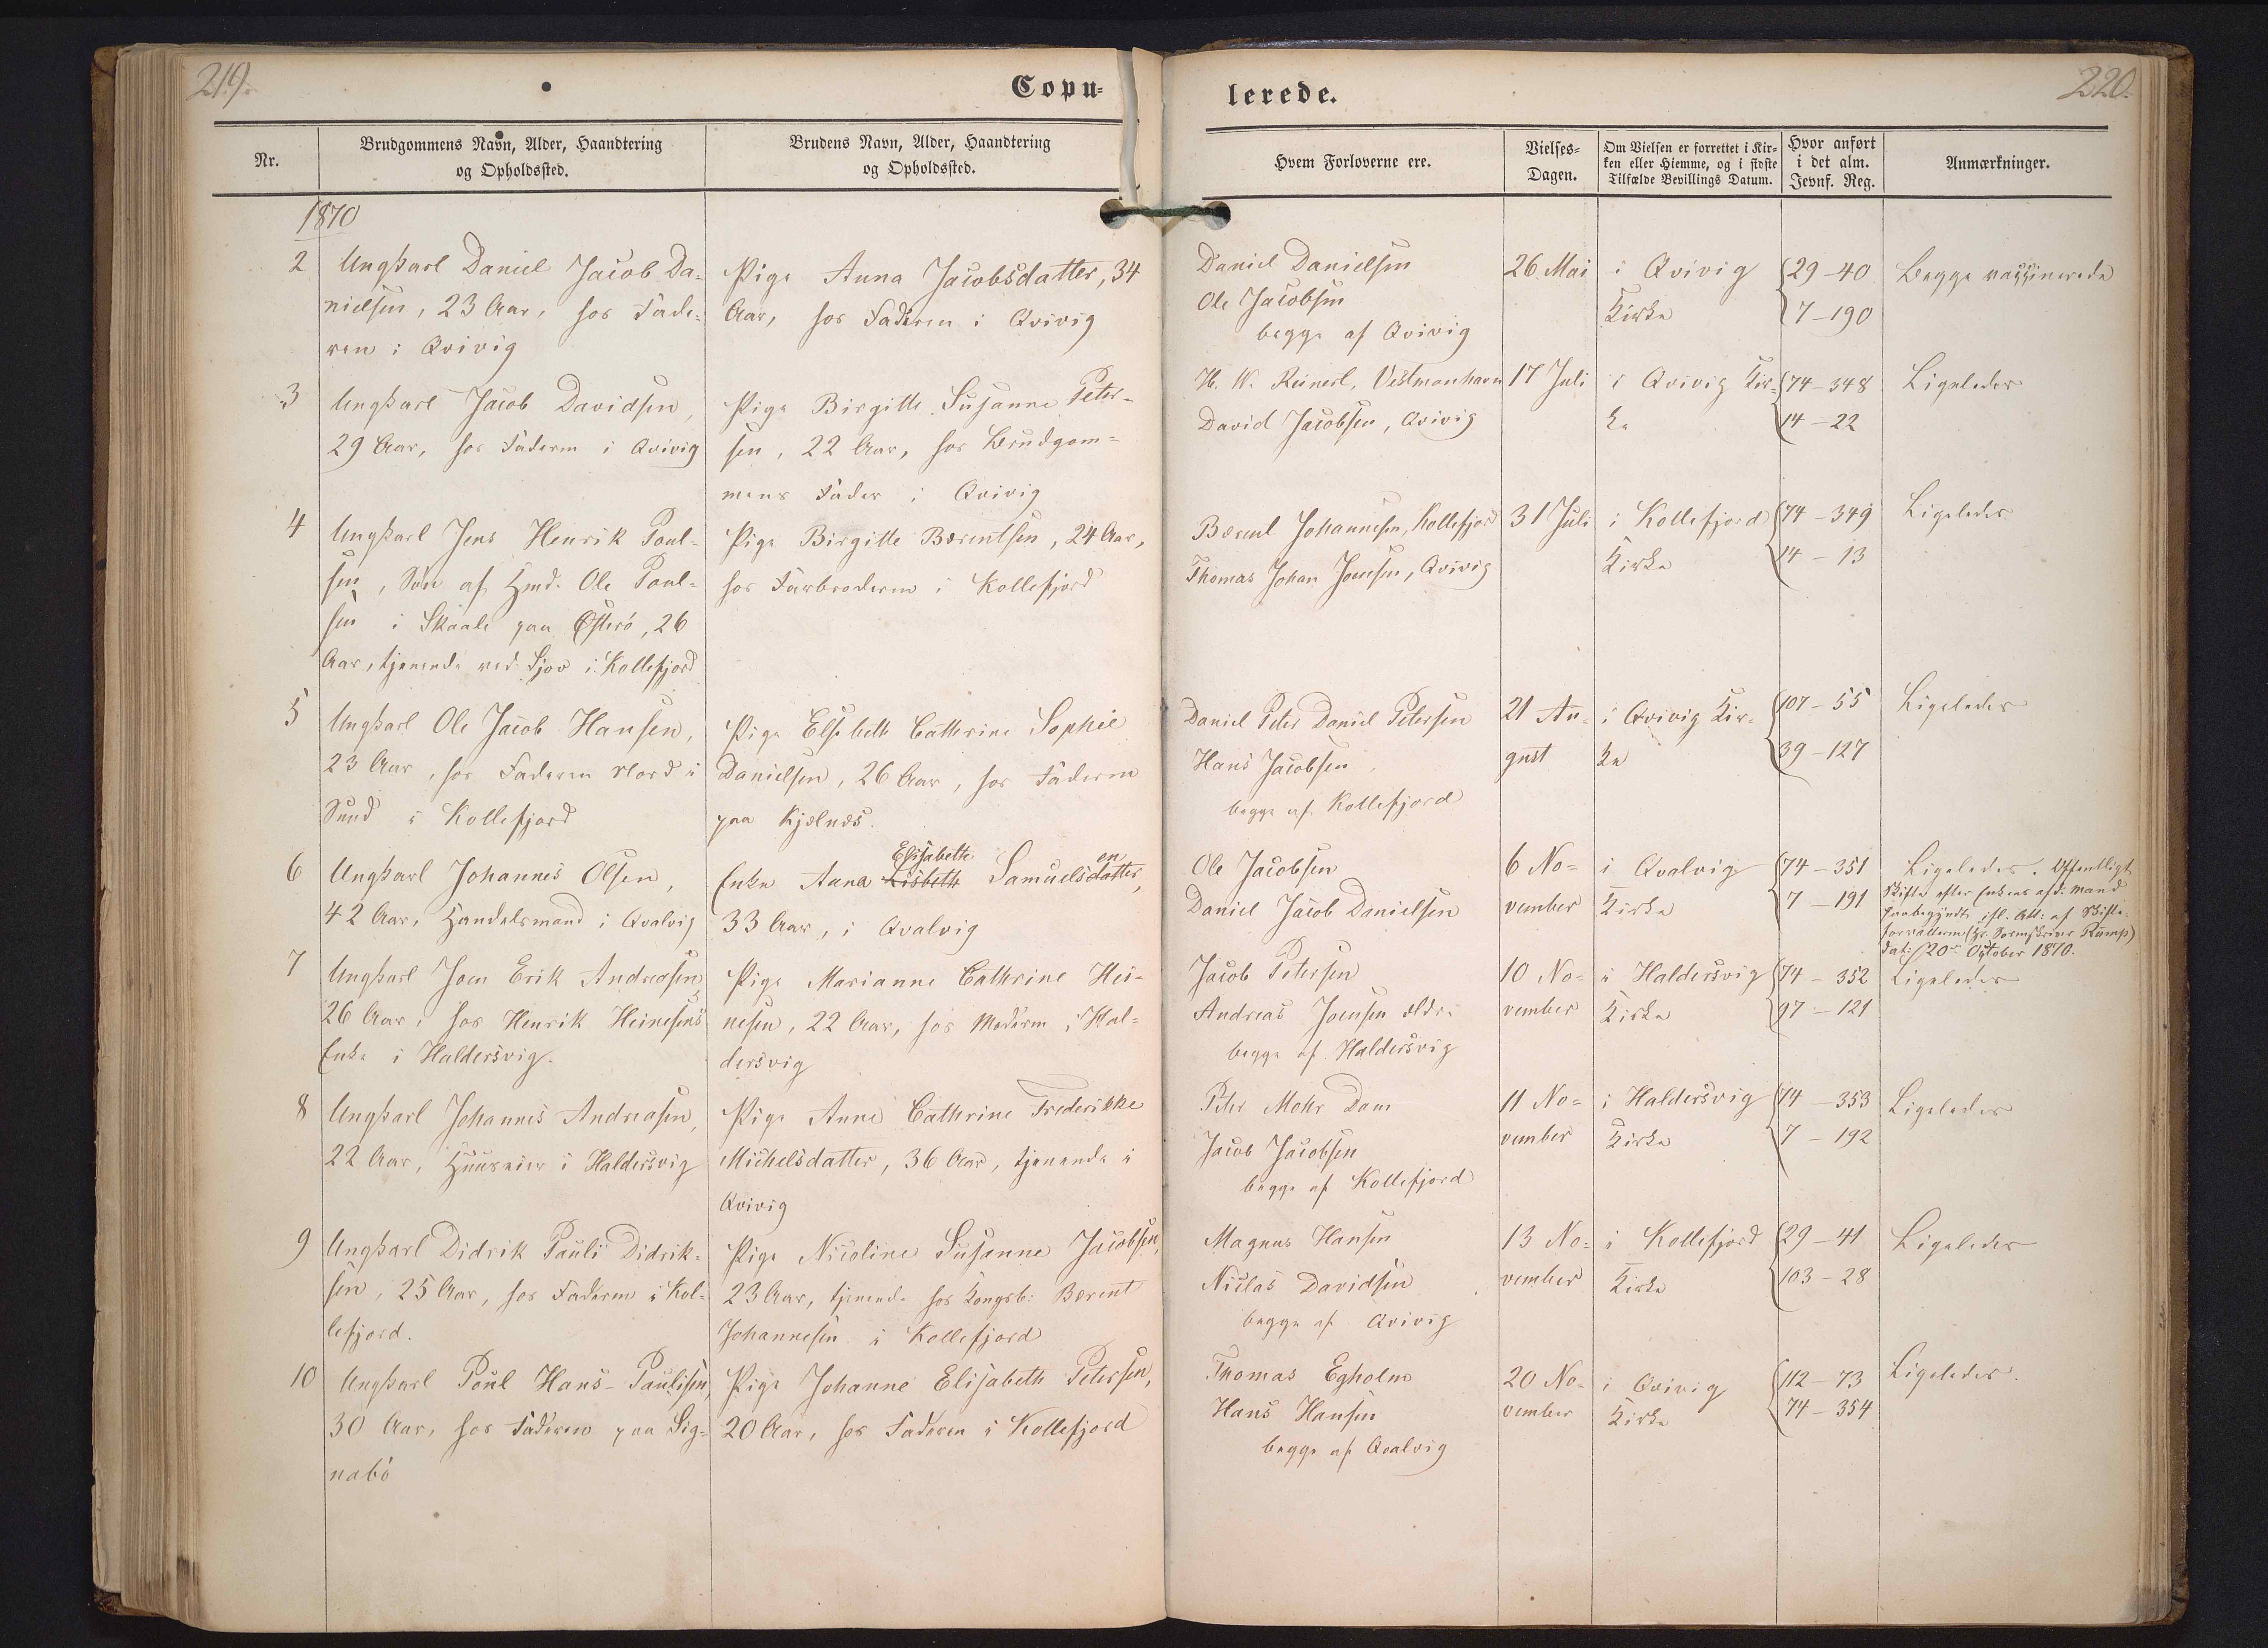 219.
Copu=
Nr.
Brudgommens Navn, Alder, Haandtering
og Opholdssted.
Brudens Navn, Alder, Haandtering
og Opholdssted.
1870
2
Ungkarl Daniel Jacob Da=
nielsen, 23 Aar, hos Fade=
ren i Qvivig
Pige Anna Jacobsdatter, 34
Aar, hos Faderen i Qvivig
3
Ungkarl Jacob Davidsen,
29 Aar, hos Faderen i Qvivig
Pige Birgitte Susanne Peter=
sen, 22 Aar, hos Brudgom=
mens Fader i Qvivig
4
Ungkarl Jens Henrik Poul=
sen, Søn af Hmd. Ole Poul=
sen i Skaale paa Østerö, 26
Aar, tjenende ved Sjov i Kollefjord
Pige Birgitte Bærentsen, 24 Aar,
hos Farbroderen i Kollefjord
5
Ungkarl Ole Jacob Hansen,
23 Aar, hos Faderen Nord i
Sund i Kollefjord
Pige Elsebeth Cathrine Sophie
Danielsen, 26 Aar, hos Faderen
paa Kjælnæs.
6
Ungkarl Johannes Olsen,
42 Aar, Handelsmand i Qvalvig
Elisabeth en
Enke Anna Lisbeth Samuelsdatter,
33 Aar, i Qvalvig
7
Ungkarl Joen Erik Andreasen,
26 Aar, hos Henrik Heinesens
Enke i Haldersvig.
Pige Marianne Cathrine Hei=
nesen, 22 Aar, hos Moderen i Hal=
dersvig
8
Ungkarl Johannes Andreasen,
22 Aar, Huuseier i Haldersvig
Pige Anne Cathrine Frederikke
Michelsdatter, 36 Aar, tjenende i
Qvivig
9
Ungkarl Didrik Pauli Didrik=
sen, 25 Aar, hos Faderen i Kol=
lefjord.
Pige Nicoline Susanne Jacobsen,
23 Aar, tjenende hos Kongsb. Bærent
Johannesen i Kollefjord
10
Ungkarl Poul Hans-Paulisen,
30 Aar, hos Faderen paa Sig=
nabö
Pige Johanne Elisabeth Petersen,
20 Aar, hos Faderen i Kollefjord
220.
lerede.
Hvem Forloverne ere.
Vielses=
Dagen.
Om Vielsen er forrettet i Kir=
ken eller Hiemme, og i sidste
Tilfælde Bevillings Datum.
Hvor anført
i det alm.
Jevnf. Reg.
Anmærkninger.
Daniel Danielsen
Ole Jacobsen
begge af Qvivig
26. Mai
i Qvivig
Kirke
29-40
7-190
Begge vaccinerede
H. W. Reinert, Vestmanhavn
David Jacobsen, Qvivig
17 Juli
i Qvivig Kir=
ke
74-348
14-22
Ligeledes
Bærent Johannesen, Kollefjord
Thomas Johan Joensen, Qvivig
31 Juli
i Kollefjord
Kirke
74-349
14-13
Ligeledes
Daniel Peter Daniel Petersen
Hans Jacobsen,
begge af Kollefjord
21 Au=
gust
i Qvivig Kir=
ke
107-55
39-127
Ligeledes
Ole Jacobsen
Daniel Jacob Danielsen
6 No=
vember
i Qvalvig
Kirke
74-351
7-191
Ligeledes. Offentligt
Skifte efter Enkens afd: Mand
paabegyndt, ifl. Att: af Skifte=
forvalteren (Hr. Sorenskriver Rump)
dat: 20de October 1870.
Jacob Petersen
Andreas Joensen ældre
begge af Haldersvig
10 No=
vember
i Haldersvig
Kirke
74-352
97-121
Ligeledes
Peter Mohr Dam
Jacob Jacobsen
begge af Kollefjord
11 No=
vember
i Haldersvig
Kirke
74-353
7-192
Ligeledes
Magnus Hansen
Niclas Davidsen
begge af Qvivig
13 No=
vember
i Kollefjord
Kirke
29-41
103-28
Ligeledes
Thomas Egholm
Hans Hansen
begge af Qvalvig
20 No=
vember
i Qvivig
Kirke
112-73
74-354
Ligeledes.